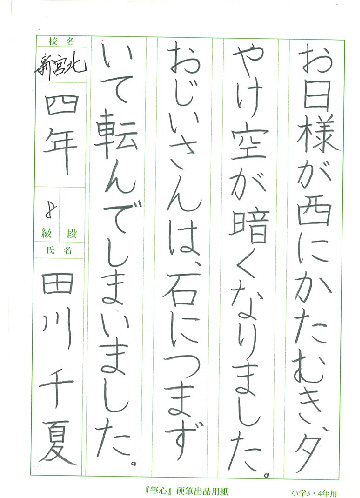 お日様が西にかたむき、夕
やけ空が暗くなりました。
おじいさんは、石につまず
いて転んでしまいました。
校名
新宮北
四年
8
級 段
氏名
田川千夏
『書心』硬筆出品用紙
小学3・4年用